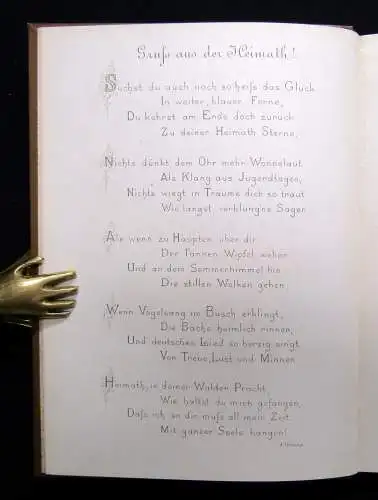 Gruß aus der Heimath!
Suchst du auch noch so heiß das Glück
In weiter, blauer Ferne,
Du kehrst am Ende doch zurück
Zu deiner Heimath Sterne.
Nichts dünkt dem Ohr mehr Wonnelaut
Als Klang aus Jugendtagen,
Nichts wiegt in Träume dich so traut
Wie längst verklung'ne Sagen
Als wenn zu Häupten über dir
Der Tannen Wipfel wehen
Und an dem Sommerhimmel hin
Die stillen Wolken gehen
Wenn Vogelsang im Busch erklingt,
Die Bäche heimlich rinnen,
Und deutsches Lied so herzig singt
Von Treue, Lust und Minnen
Heimath, in deiner Wälder Pracht,
Wie hältst du mich gefangen,
Daß ich an dir muß all mein Zeit
Mit ganzer Seele hangen!